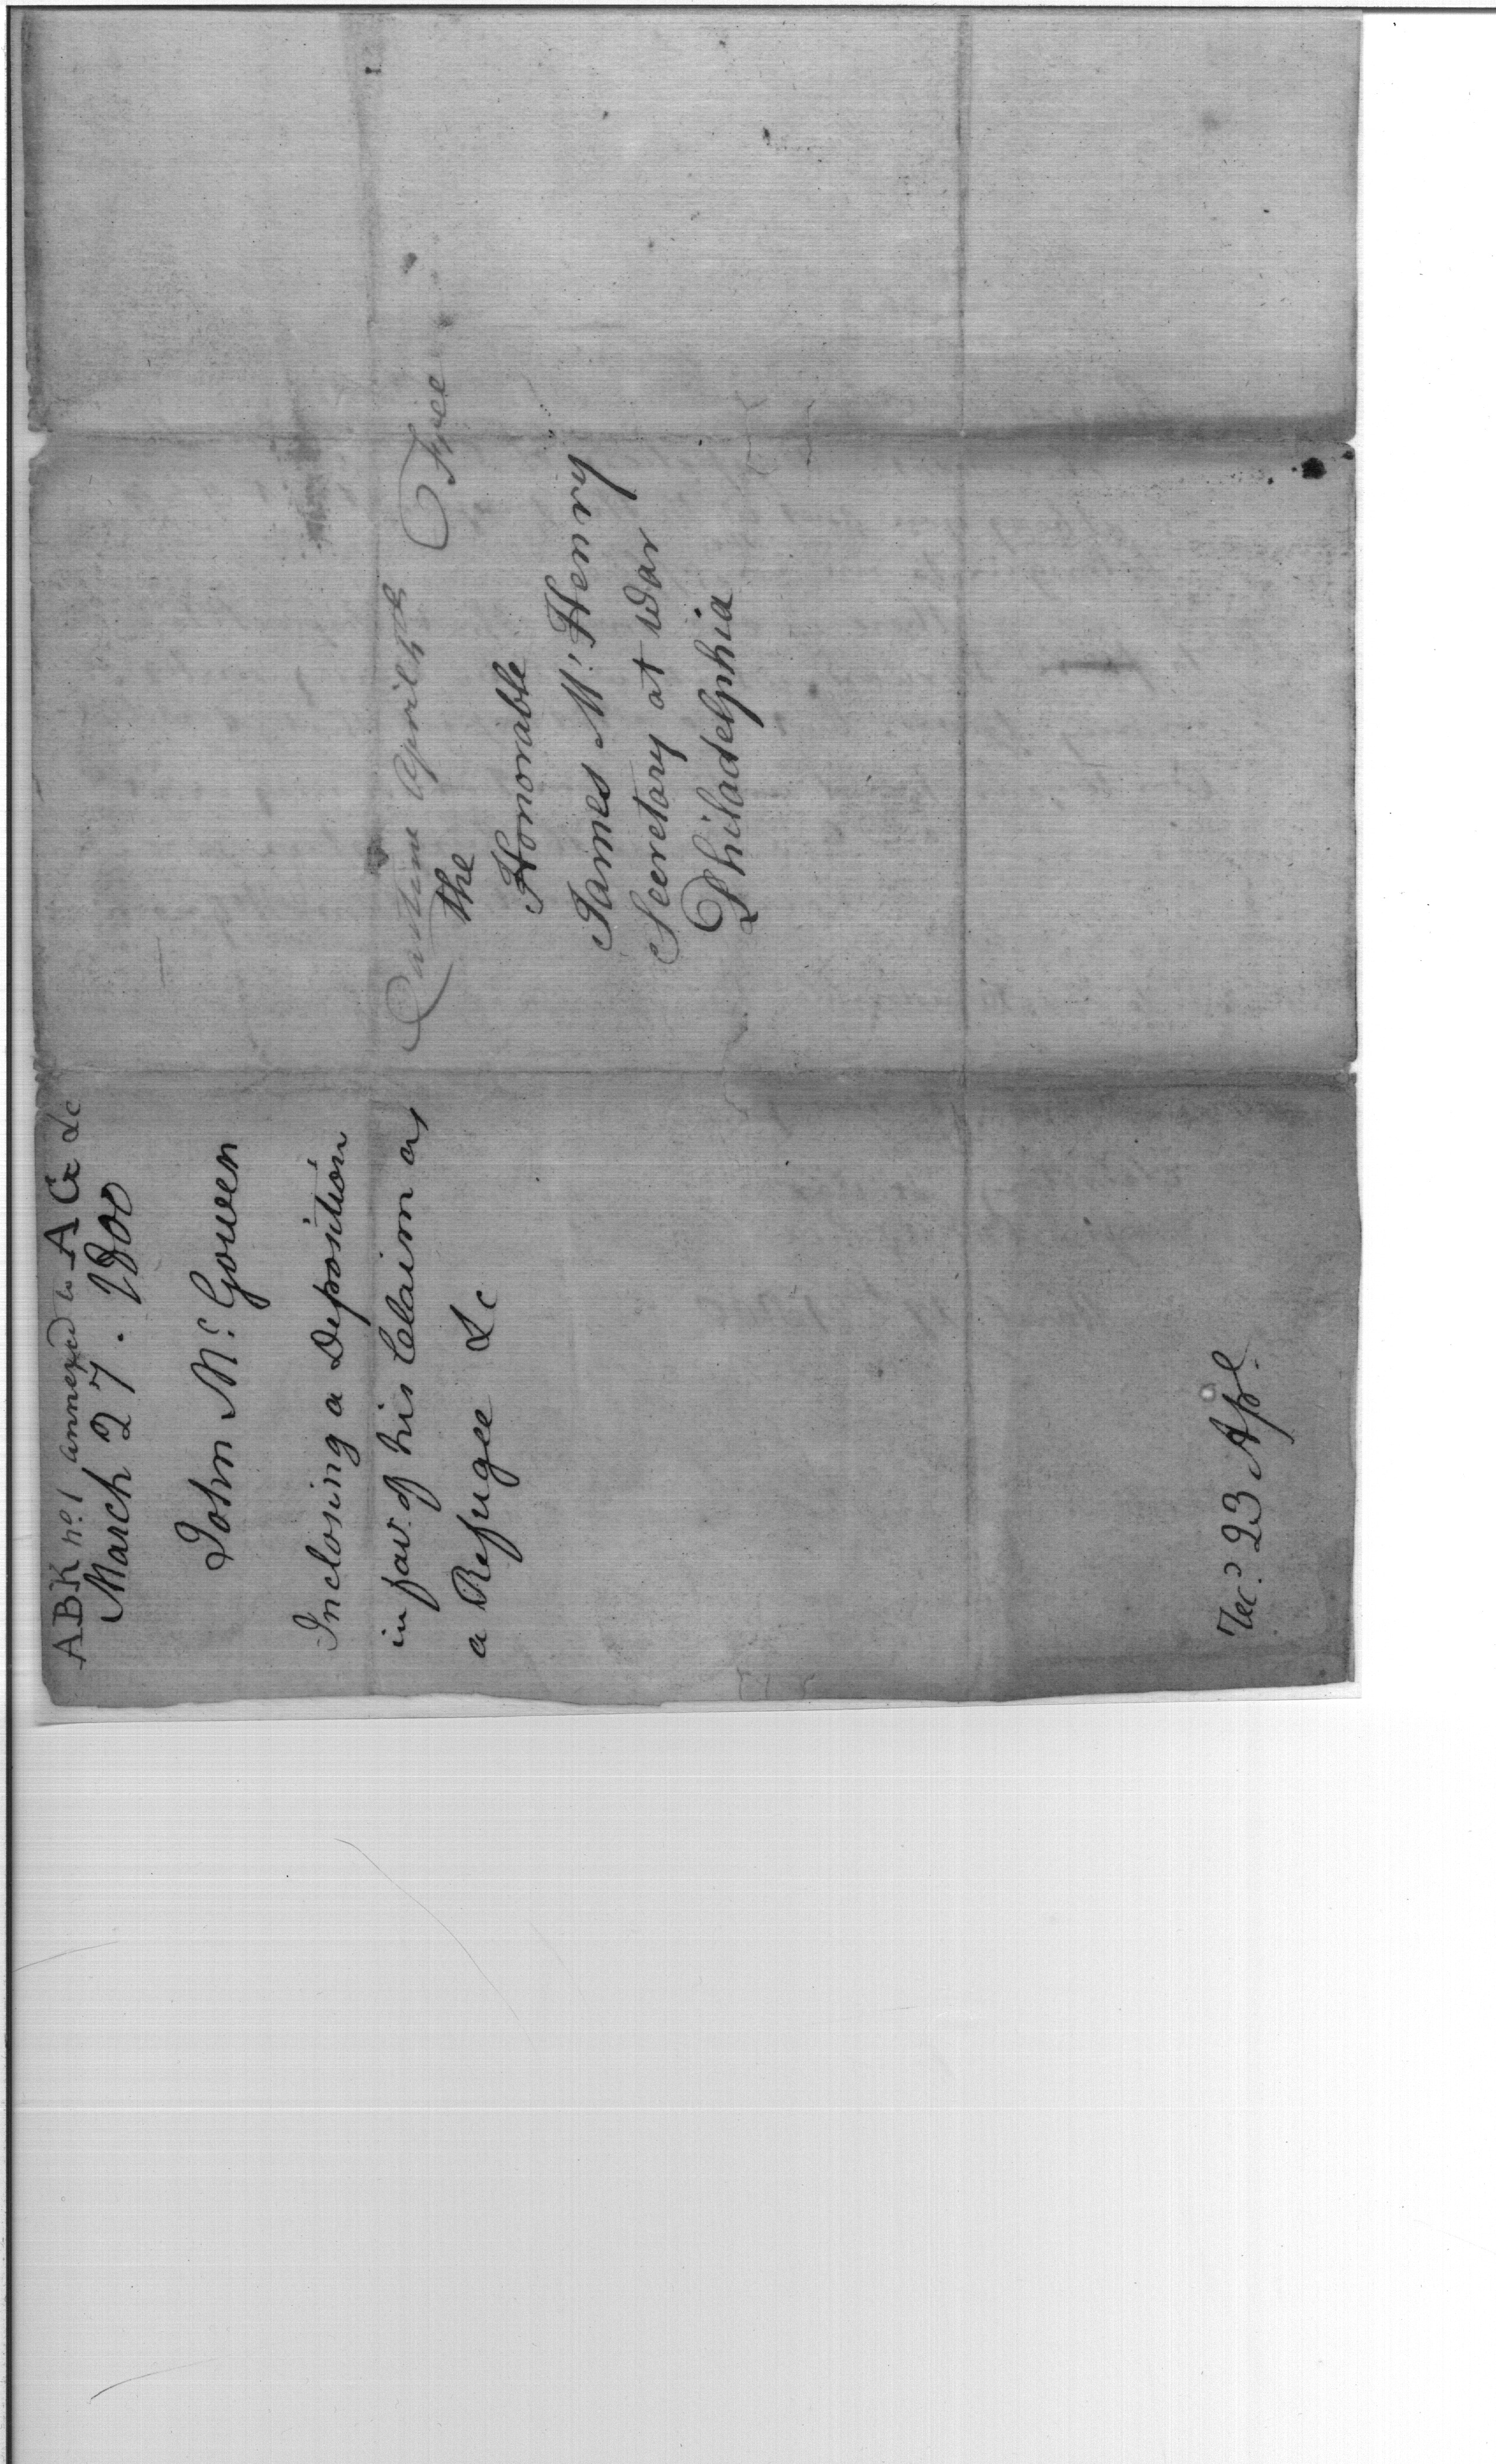 ABK no. 1 annexed to A G &c
March 27. 1800
John Mc. Gowen
Inclosing a Deposition
in fav. of his Claim as
a Refugee &c
recd. 23 Apl.
April Free
The
Honorable
James Mc. Henry
Secretary at War
Philadelphia